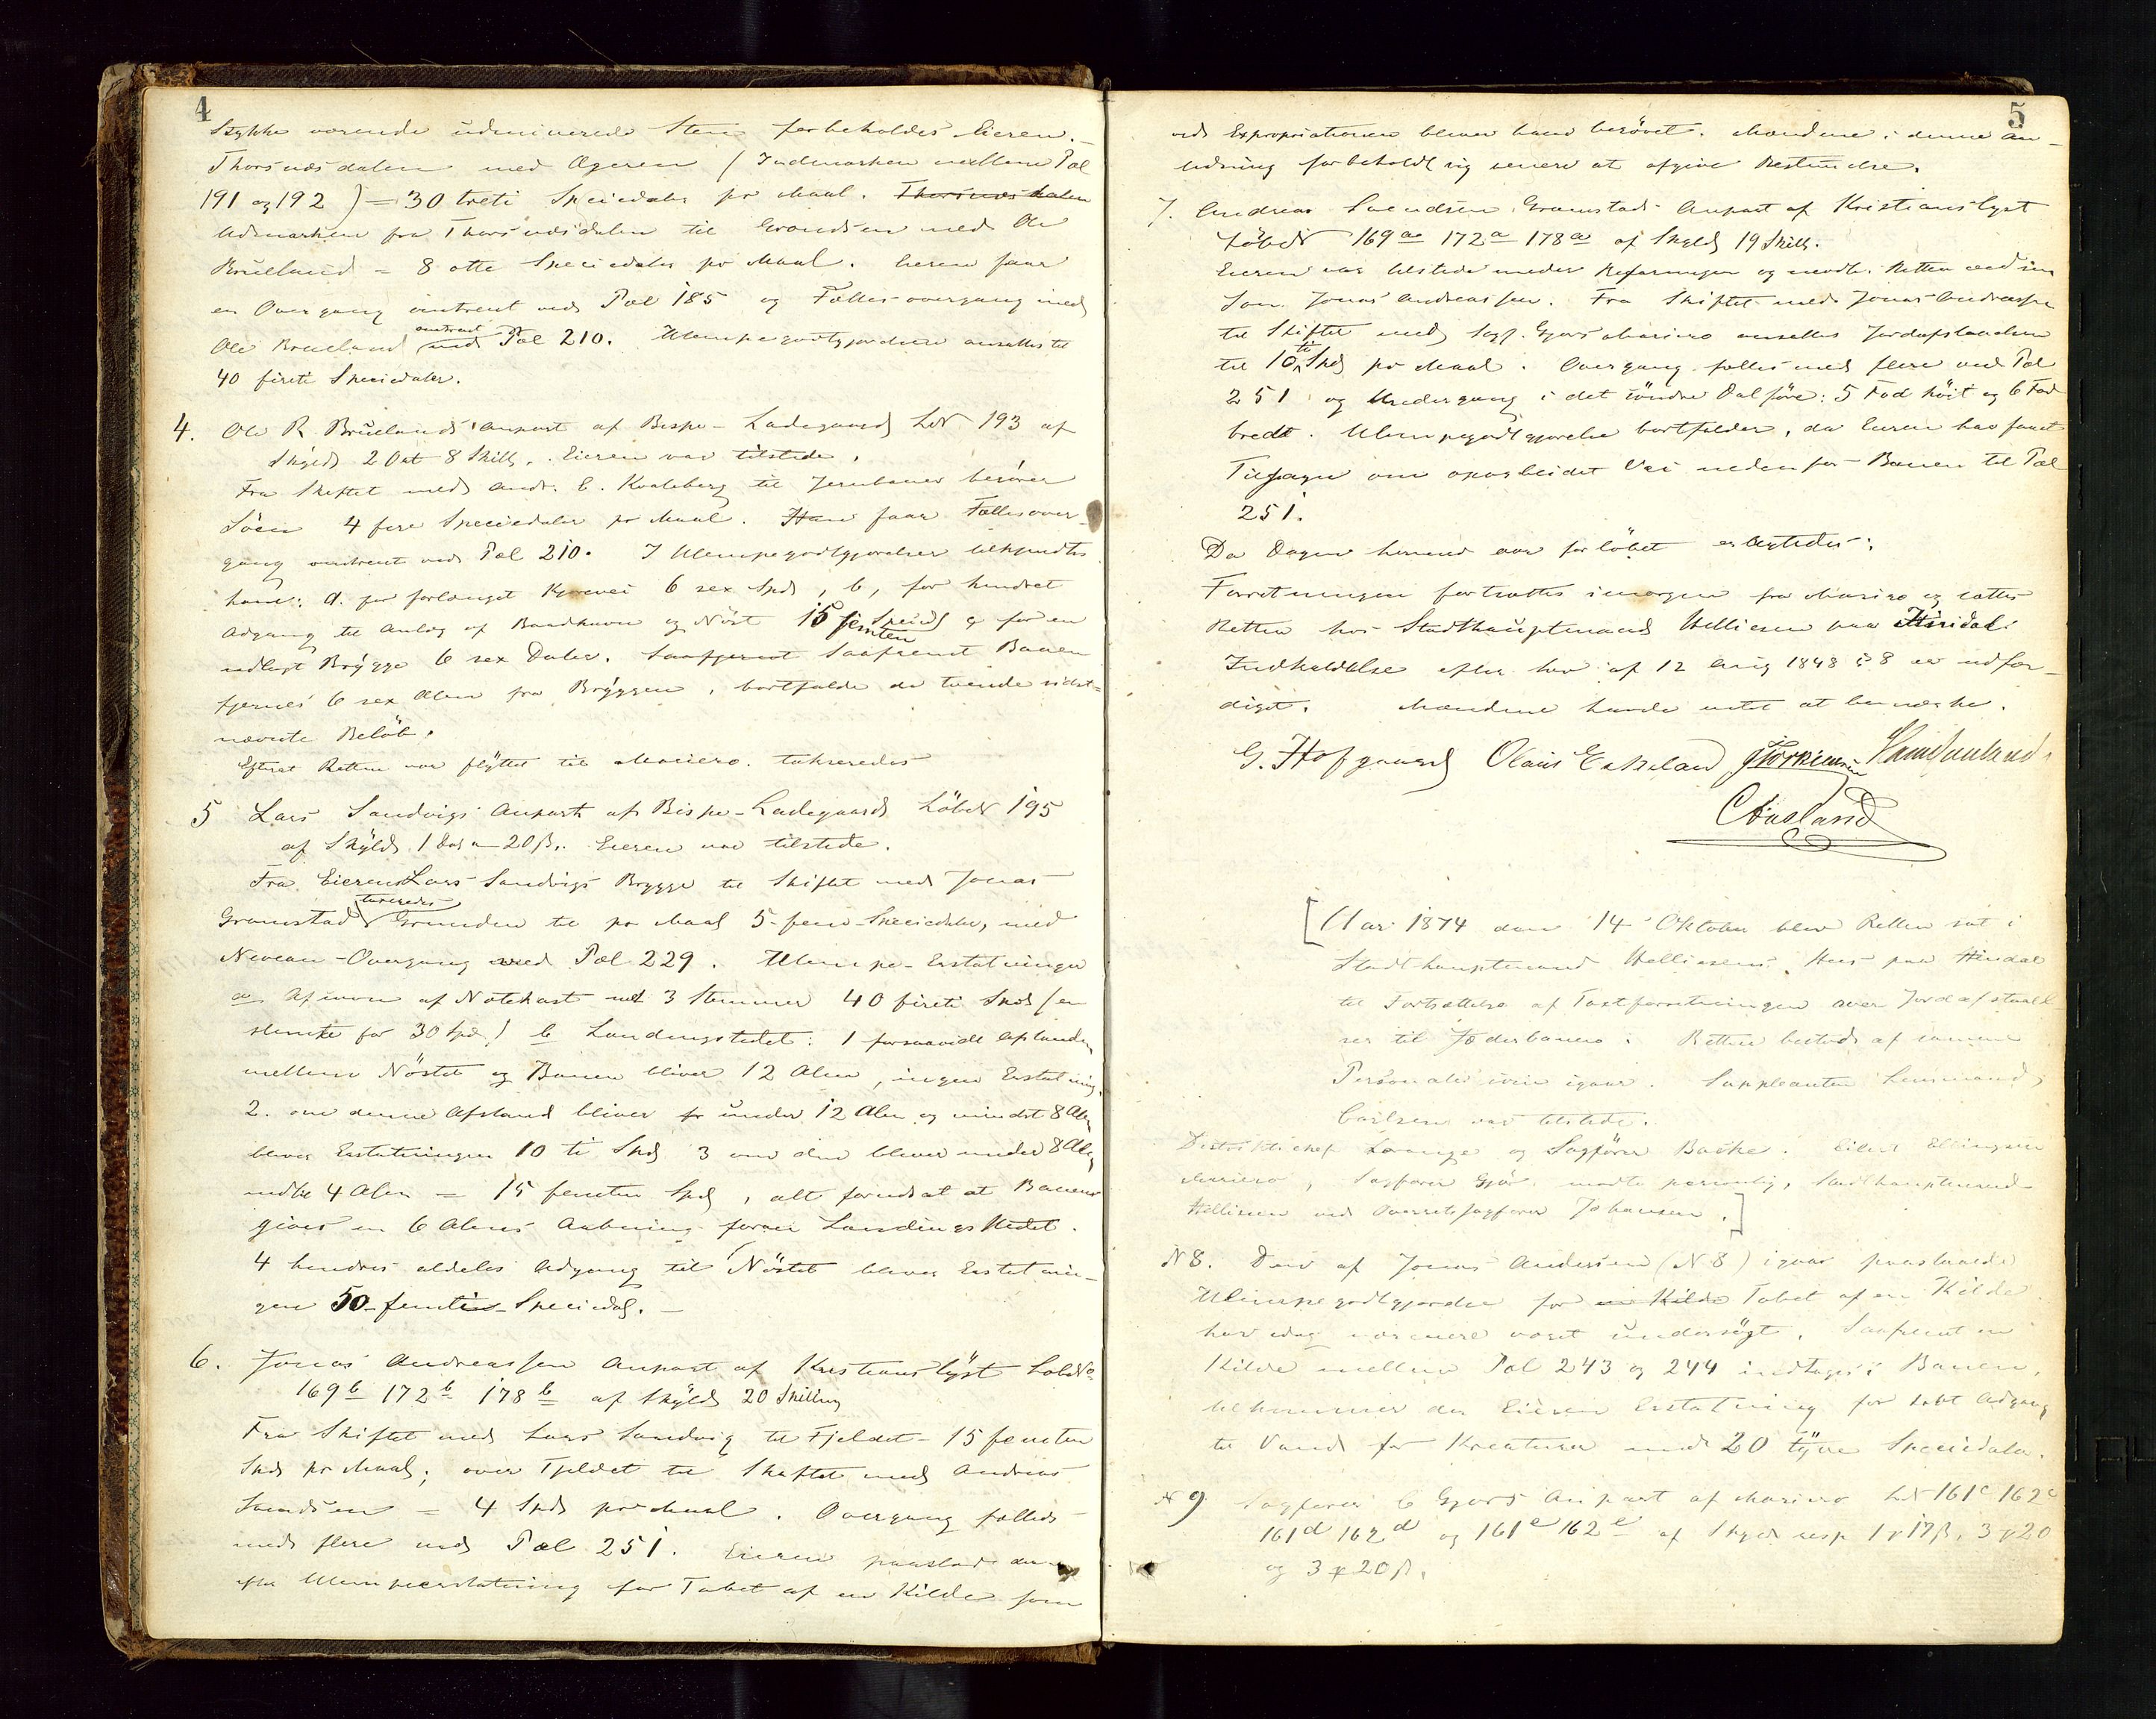 4
Stykke værende udminerede Sten forbeholdes Eieren.
Thorsnæsdalen med Ageren (Indmarken mellem Pæl
191 og 192) = 30 treti Speciedaler pr Maal. Thorsnæsdalen
Udmarken fra Thorsnæsdalen til Grændsen med Ole
Brueland = 8 otte Speciedaler pr Maal. Eieren faar
en Overgang omtrent ved Pæl 185 og Fælles-overgang med
Ole Brueland omtrent ved Pæl 210. Ulempegodtgjørelsen ansattes til
40 fireti Speciedaler.
4. Ole R. Bruelands Anpart af Bispe-Ladegaard LN 193 af
Skyld 2 Ort 8 Skill. Eieren var tilstede.
Fra Skiftet med Andr. E. Kvaleberg til Jernbanen berører
Söen 4 fire Speciedaler pr Maal. Han faar Fællesover-
gang omtrent ved Pæl 210. I Ulempegodtgjørelser tilkjendtes
ham: a. for forlænget Kjørevei 6 sex Spd, b, for hindret
Adgang til Anlæg af Baadhavn og Nöst 15 femten Specid og for en
udlagt Brygge 6 sex Daler. Saafremt Banen
fjernes 6 sex Alen fra Bryggen, bortfalde de tvende sidst-
nævnte Belöb.
Efterat Retten var flyttet til Mariero taxeredes
5 Lars Sandvigs Anpart af Bispe-Ladegaard LöbeN 195
af Skyld 1 Dal 20 β. Eieren var tilstede.
Fra Eieren Lars Sandvigs Brygge til Skiftet med Jonas
Gramstad taxeredes Grunden til pr Maal 5 fem Speciedaler, med
Niveau-Overgang ved Pæl 229. Ulempe-Erstatninger
a. Afsavn af Notekast med 3 Stemmer 40 fireti Spd (en
stemte for 30 Spd) b Landingsstedet: 1 forsaavidt Afstanden
mellem Nöstet og Banen bliver 12 Alen, ingen Erstatning,
2. om denne Afstand bliver under 12 Alen og mindst 8 Alen
bliver Erstatningen 10 ti Spd 3 om den bliver under 8 Alen
indtil 4 Alen = 15 femten Spd, alt forudsat at Banen
gives en 6 Alens Aabning foran Landingsstedet.
4 hindres aldeles Adgang til Nöstet bliver Erstatnin-
gen 50 femti Speciedal.
6. Jonas Andreassen Anpart af Kristianslyst LöbeNo
169 b 172 b 178 b af Skyld 20 Skilling
Fra Skiftet med Lars Sandvig til Fjeldet = 15 femten
Spd pr Maal; over Fjeldet til Skiftet med Andreas
Svendsen = 4 Spd pr Maal. Overgang fælleds
med flere ved Pæl 251. Eieren paastod
Ulempeerstatning for Tabet af en Kilde som
5
ved Expropriationen bliver ham berövet. Mændene i denne An-
ledning forbeholdt sig senere at afgive Bestemmelse.
7. Andreas Svendsen Gramstads Anpart af Kristianslyst
LöbeN 169 a 172 a 178 a af Skyld 19 Skill.
Eieren var tilstede under Befaringen og mødte i Retten ved sin
Søn Jonas Andreassen. Fra Skiftet med Jonas Andreassen
til Skiftet med Sagf. Gjørs Mariero ansattes Jordafstaaelsen
til 10 ti Spd pr Maal. Overgang fælles med flere ved Pæl
251 og Undergang i det söndre Dalföre: 5 Fod höit og 6 Fod
bredt. Ulempegodtgjørelse bortfalder, da Eieren har faaet
Tilsagn om oparbeidet Vei nedenfor Banen til Pæl
251.
Da Dagen hermed var forløbet erAgtedes:
Forretningen fortsættes imorgen fra Mariero og sættes
Retten hos Stadthauptmand Helliesen paa Hindal
Indkaldelse efter Lov af 12 Aug 1848 § 8 er udfær-
diget. Mændene havde intet at bemærke.
G. Hofgaard Olaus Eskeland
C Aasland
[Aar 1874 den 14 Oktober blev Retten sat i
Stadthauptmand Helliesens Hus paa Hindal
til Fortsættelse af Taxtforretningen over Jordafstaael
ser til Jæderbanen. Retten bestod af samme
Personale som igaar. Suppleanten Lensmand
Carlsen var tilstede.
Distriktschef Lorange og Sagfører Backe. Eilert Ellingsen
Mariero, Sagfører Gjör mødte personlig, Stadthauptmand
Helliesen ved Overretssagfører Johansen.]
N 8. Den af Jonas Andersen (N 8) igaar paastaaede
Ulempegodtgjørelse for en Kilde Tabet af en Kilde
har idag nærmere været undersögt. Saafremt en
Kilde mellem Pæl 243 og 244 indtages i Banen,
tilkommer der Eieren Erstatning for tabt Adgang
til Vand for Kreaturer med 20 tyve Speciedaler.
N 9 Sagfører C Gjørs Anpart af Mariero LN 161 c 162 c
161 d 162 d og 161 e 162 e af Skyld resp 1 17 β, 3 20
og 3 20 β.